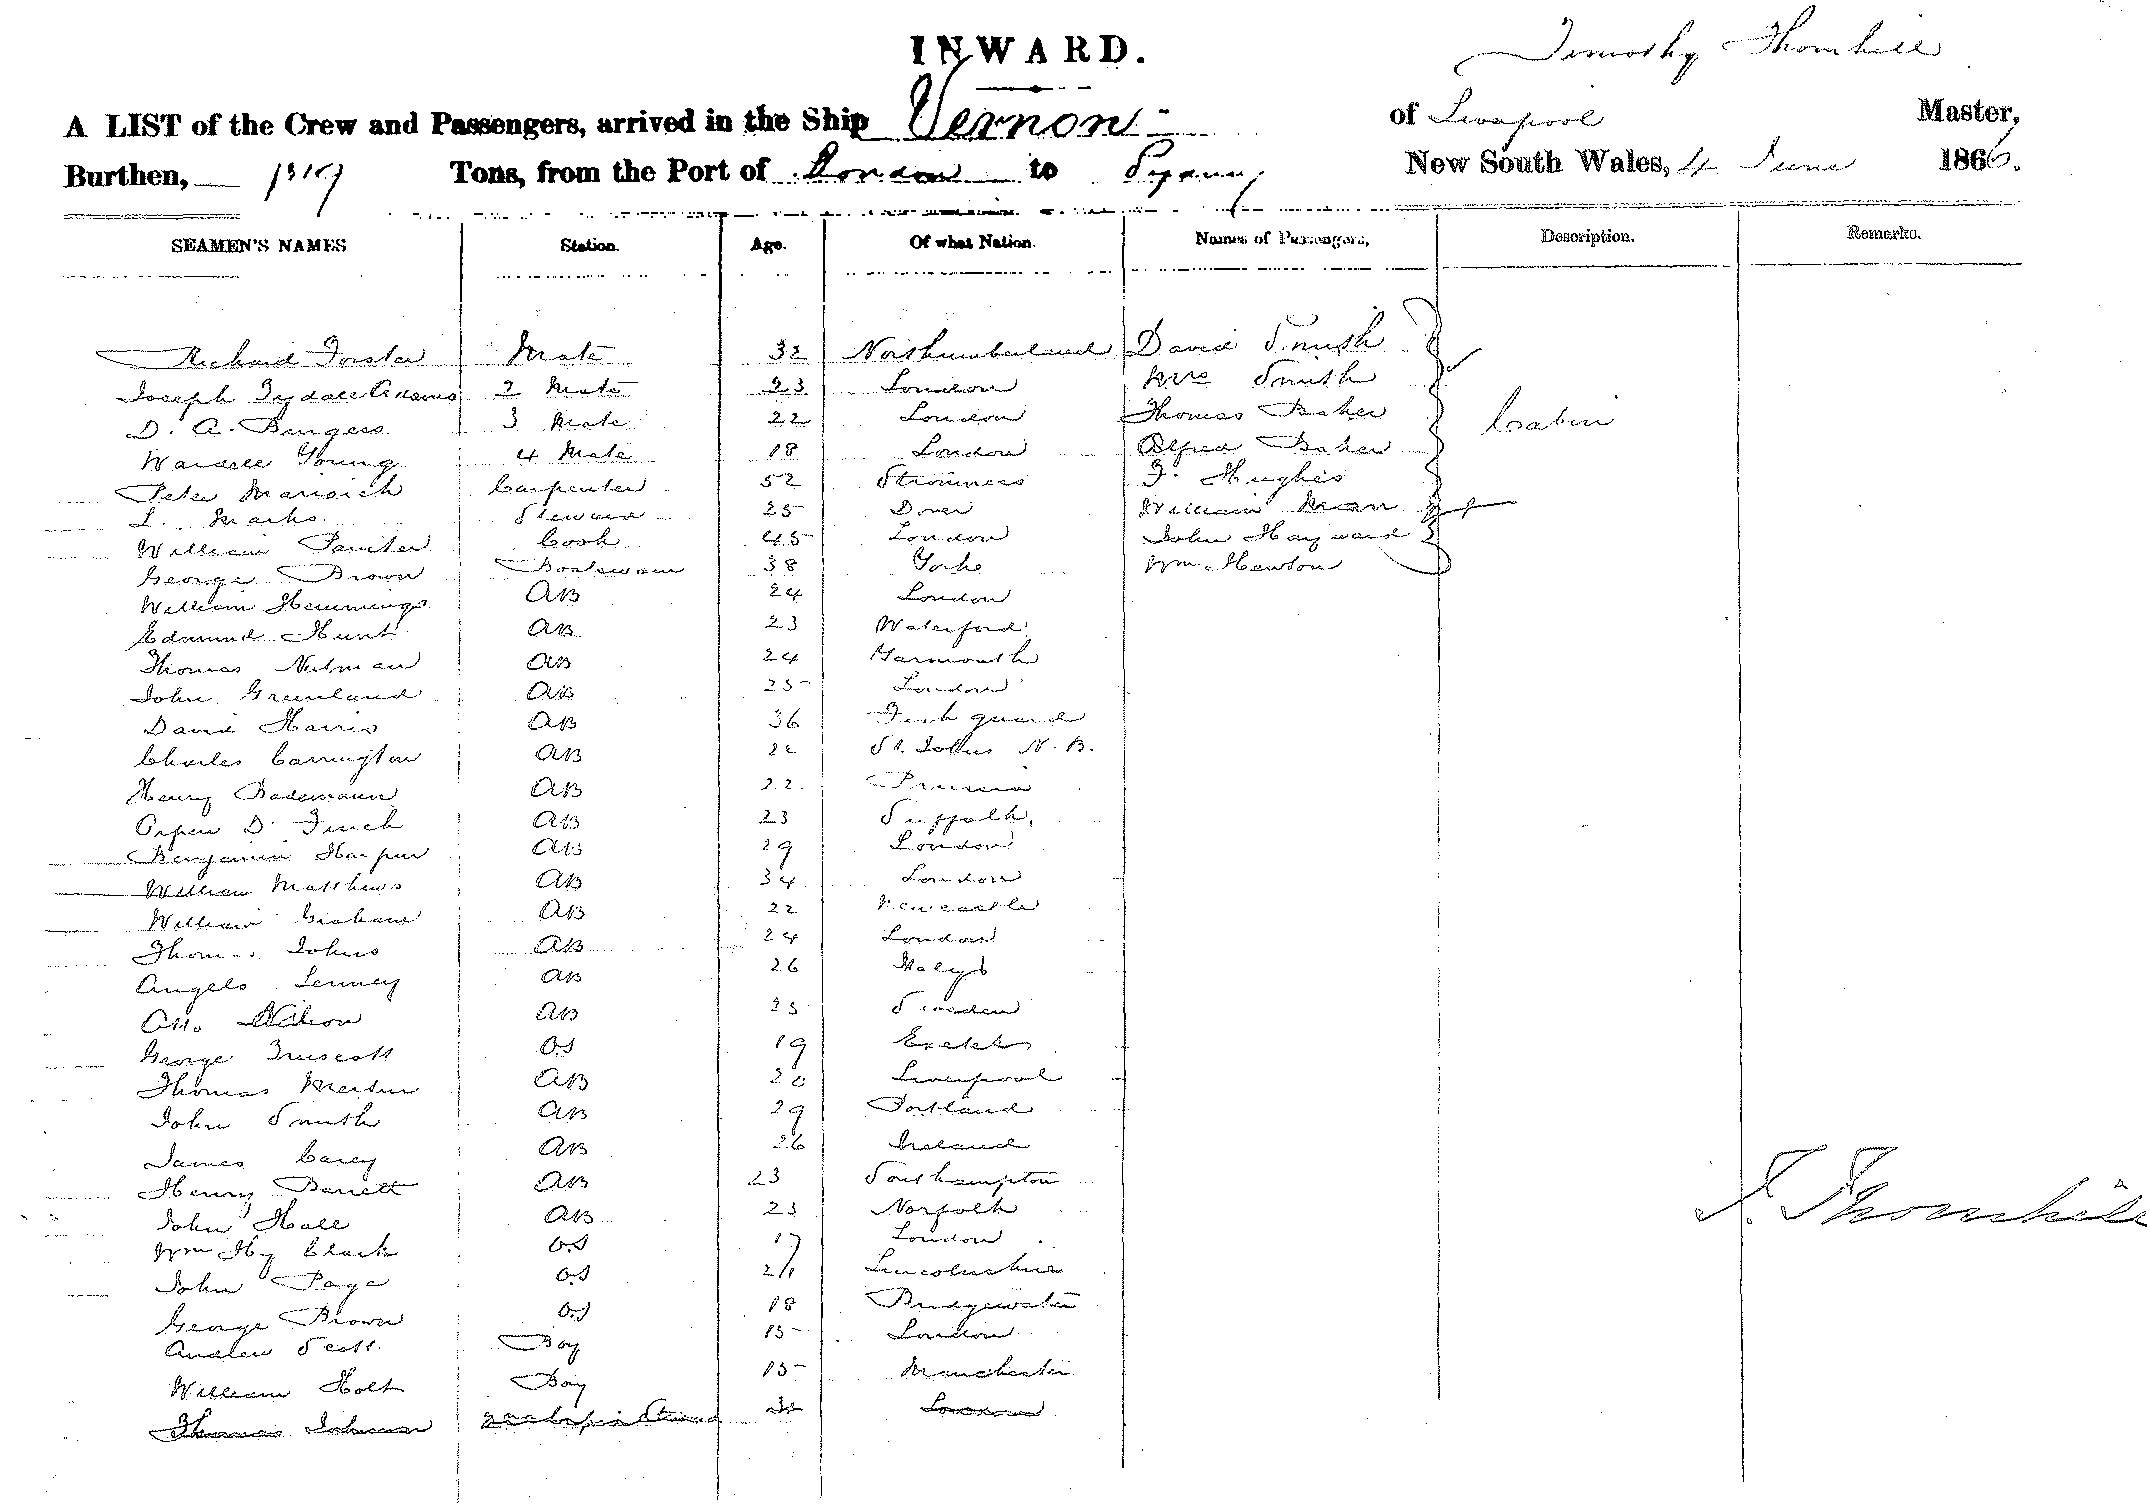 INWARD.
Timothy Thornhill
A LIST of the Crew and Passengers, arrived in the Ship Vernon of Liverpool Master,
Burthen, Tons, from the Port of London to Sydney New South Wales, 4 June 1866.
SEAMEN'S NAMES Station. Age. Of what Nation. Names of Passengers, Description. Remarks.
Richard Forster Mate 32 Northumberland David Smith
Joseph Tydall Adams 2 Mate 23 London Mrs Smith
D. A. Burgess 3 Mate 22 London Thomas Baker Cabin
Wardell Young 4 Mate 18 London Alfred Baker
Peter Carpenter 52 Stromness F. Hughes
L. Marks Steward 25 Dover William Mean
William Painter Cook 45 London John Hayward
George Brown Boatswain 38 York Wm Hewton
William Hemmings AB 24 London
Edmund Hunt AB 23 Waterford
Thomas Nutman AB 24 Yarmouth
John Greenland AB 25 London
David Harris AB 36 Fishguard
Charles Carrington AB 22 St. Johns N.B.
Henry Bademann AB 22 Prussia
Orpen D. Finch AB 23 Suffolk
Benjamin Harper AB 29 London
William Matthews AB 34 London
William Graham AB 22 Newcastle
Thomas Johns AB 24 London
Angelo Lenney AB 26 Italy
Otto Nilson AB 25 Sweden
George Truscott OS 19 Exeter
Thomas Martin AB 20 Liverpool
John Smith AB 29 Portland
James Carey AB 26 Ireland
Henry Barrett AB 23 Southampton
John Hall AB 23 Norfolk
Wm Hy Clark OS 17 London
John Page OS 21 Lincolnshire
George Brown OS 18 Bridgewater
Andrew Scott Boy 15 London
William Holt Boy 15 Manchester
Thomas Johnson London
T. Thornhill